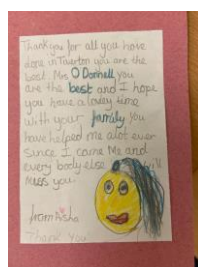 Thankyou for all you have
done in Tiverton you are the
best. Mrs O Donnell you
are the best and I hope
you have a lovey time
with your family you
have helped me alot ever
since I came Me and
every body else will
miss you.
from Aisha
Thank You